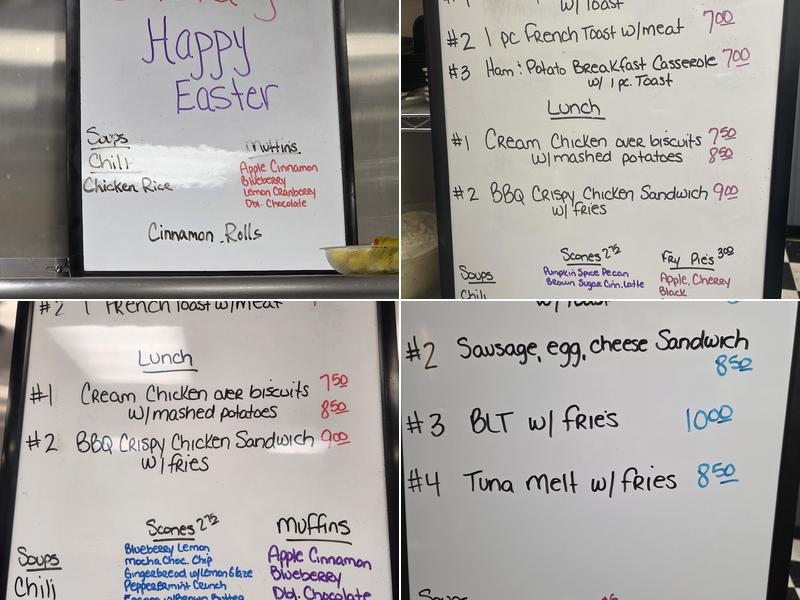 Happy
Easter
Soups
Chili
Chicken Rice
Muffins
Apple Cinnamon
Blueberry
Lemon Cranberry
Dbl. Chocolate
Cinnamon Rolls
w/ Toast
#2 1 pc French Toast w/meat 7.00
#3 Ham & Potato Breakfast Casserole 7.00
w/ 1 pc. Toast
Lunch
#1 Cream Chicken over biscuits 7.50
w/mashed potatoes 8.50
#2 BBQ Crispy Chicken Sandwich 9.00
w/ fries
Soups
Chili
Scones 2.75
Pumpkin Spice Pecan
Brown Sugar Cinn. Latte
Fry Pie's 3.00
Apple, Cherry
Black
#2 1 French Toast w/meat
Lunch
#1 Cream Chicken over biscuits 7.50
w/mashed potatoes 8.50
#2 BBQ Crispy Chicken Sandwich 9.00
w/ fries
Soups
Chili
Scones 2.75
Blueberry Lemon
Mocha Choc. Chip
Gingerbread w/Lemon Glaze
Peppermint Crunch
Muffins
Apple Cinnamon
Blueberry
Dbl. Chocolate
w/ Toast
#2 Sausage, egg, cheese Sandwich
8.50
#3 BLT w/ frie's 10.00
#4 Tuna Melt w/ fries 8.50
Soups